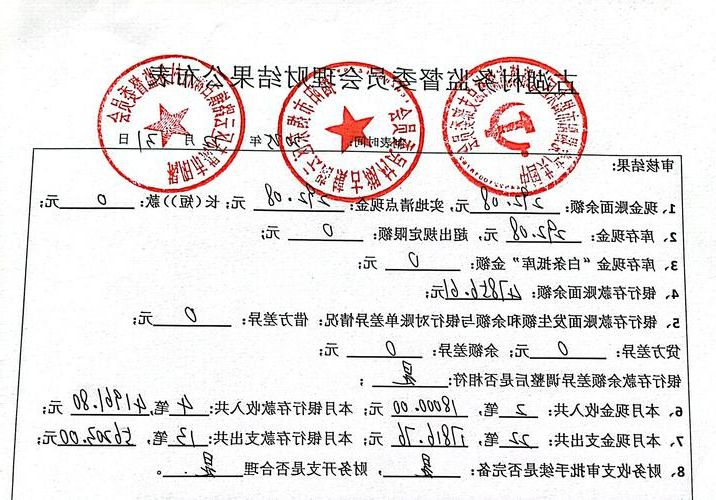 古湖村务监督委员会理财结果公布表
年 月 31 日
审核结果:
1、现金账面余额: 292.08 元, 实地清点现金: 292.08 元; 长(短)款: 0 元;
2、库存现金: 292.08 元, 超出规定限额: 0 元;
3、库存现金“白条抵库”金额: 0 元;
4、银行存款账面余额: 47856.61 元;
5、银行存款账面发生额和余额与银行对账单差异情况: 借方差异: 0 元;
贷方差异: 0 元; 余额差异: 0 元;
银行存款余额差异调整后是否相符: 是 ;
6、本月现金收入共: 2 笔, 18000.00 元; 本月银行存款收入共: 4 笔, 41961.80 元;
7、本月现金支出共: 22 笔, 17816.76 元; 本月银行存款支出共: 13 笔, 56203.00 元;
8、财务收支审批手续是否完备: 是 , 财务开支是否合理 是 。